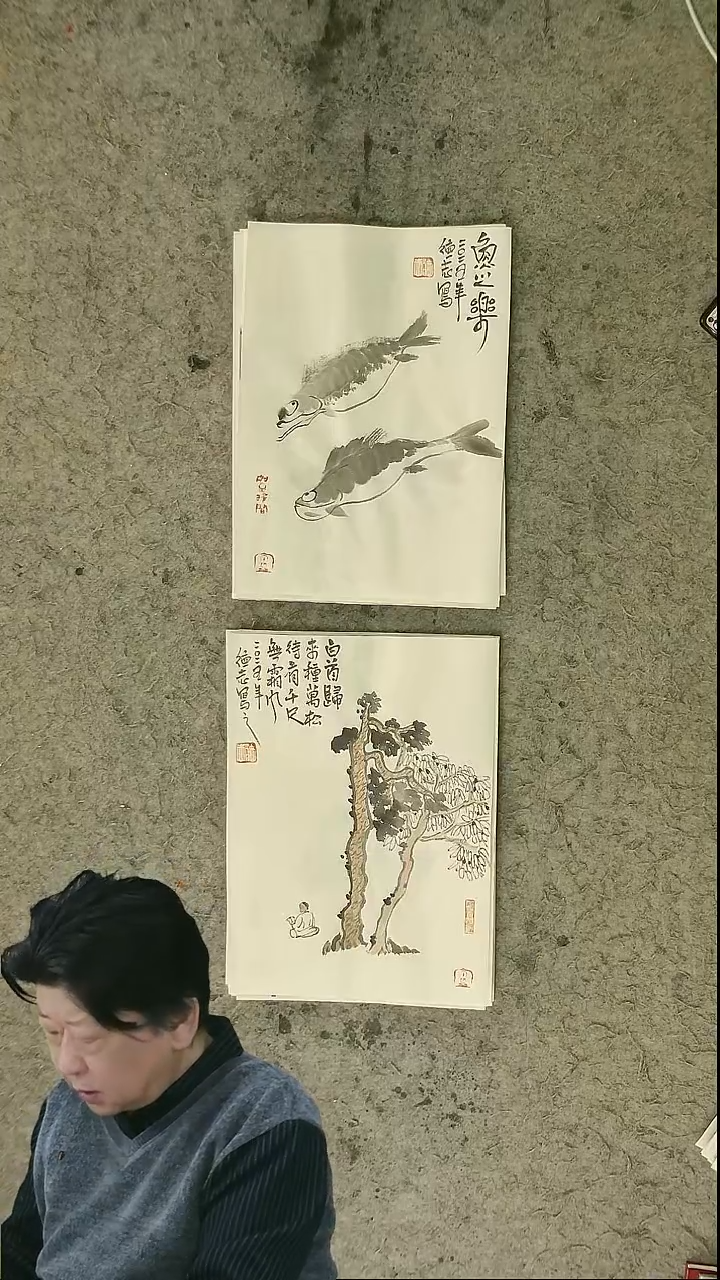 魚之樂
二〇二五年
德志寫
白首歸
來種萬松
待看千尺
舞霜風
二〇二五年
德志寫之